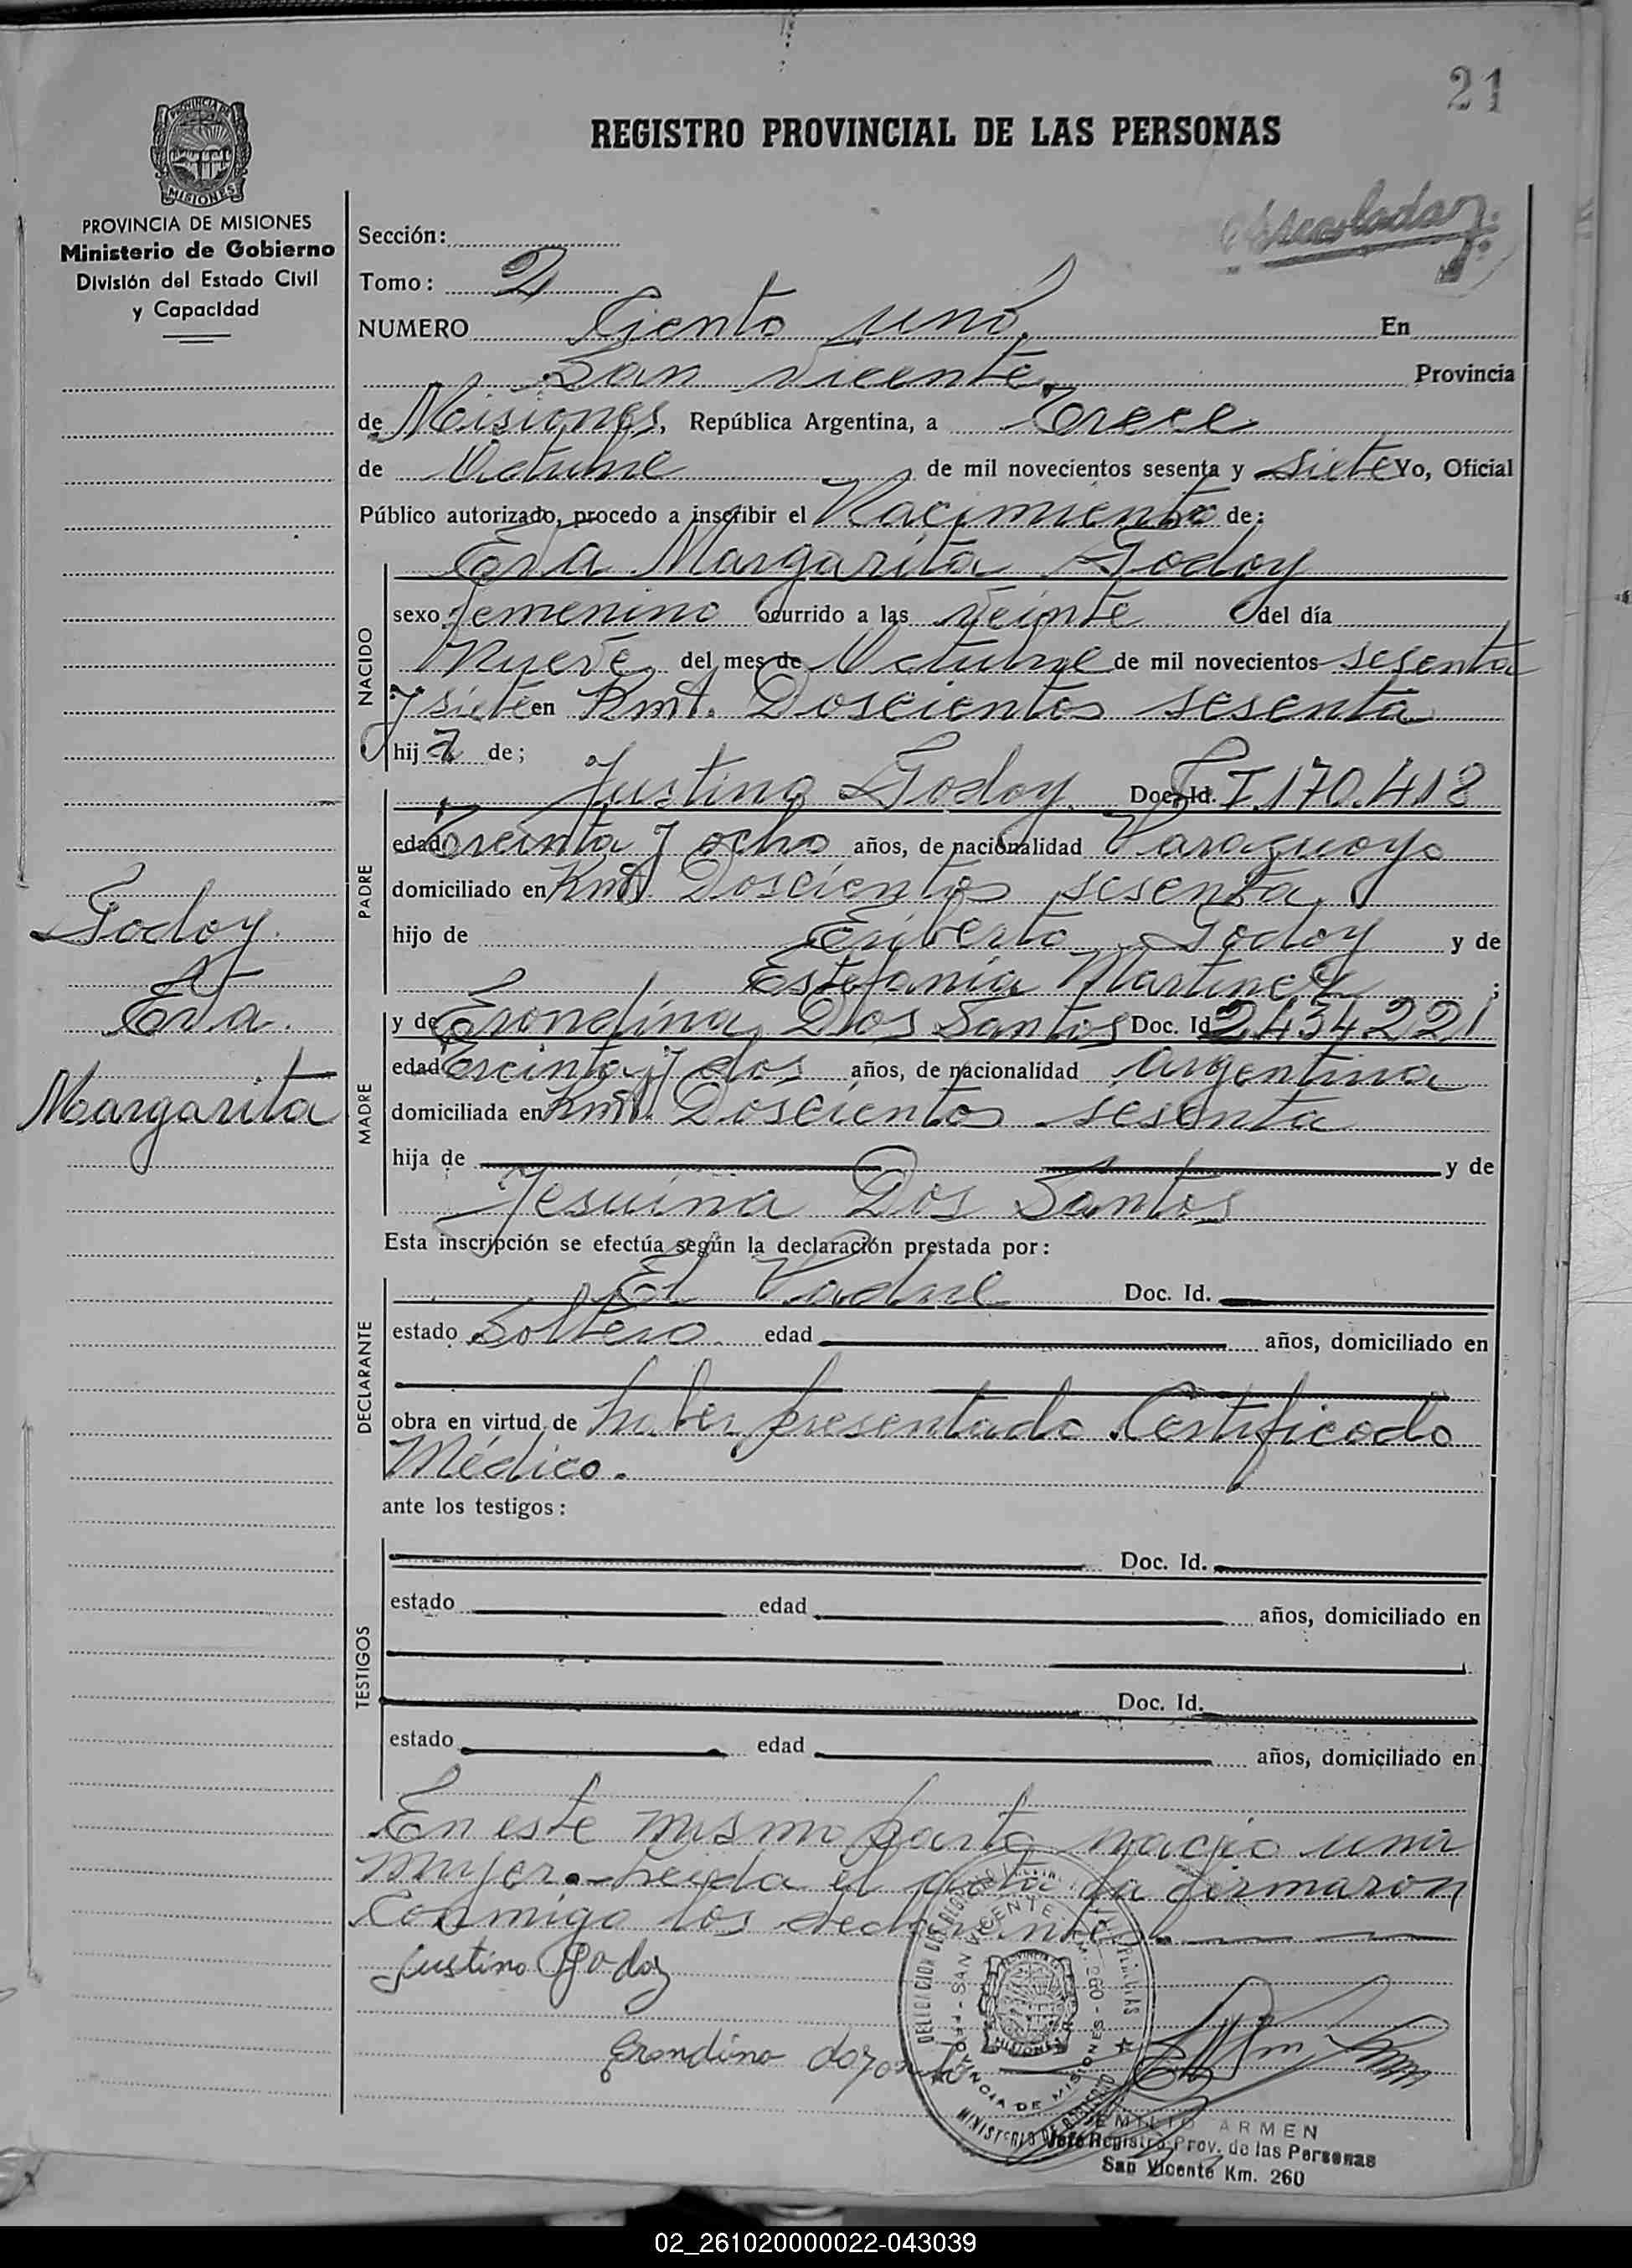 21
REGISTRO PROVINCIAL DE LAS PERSONAS
PROVINCIA DE MISIONES
Ministerio de Gobierno
División del Estado Civil
y Capacidad
Sección:
Tomo: 2
NUMERO Ciento uno. En
San Vicente, Provincia
de Misiones, República Argentina, a Trece
de Octubre de mil novecientos sesenta y siete Yo, Oficial
Público autorizado, procedo a inscribir el Nacimiento de:
NACIDO
Eva Margarita Godoy
sexo femenino ocurrido a las veinte del día
Nueve del mes de Octubre de mil novecientos sesenta
y siete en Kmt. Doscientos sesenta
hija de;
PADRE
Justino Godoy Doc. Id. C.I. 170.418
edad Treinta y ocho años, de nacionalidad Paraguayo
domiciliado en Kmt. Doscientos sesenta
hijo de Eriberto Godoy y de
Estefania Martinez ;
Godoy
Eva
Margarita
MADRE
y de Erondina Dos Santos Doc. Id. 2.434.221
edad Treinta y dos años, de nacionalidad argentina
domiciliada en Kmt. Doscientos sesenta
hija de y de
Jesuina Dos Santos
Esta inscripción se efectúa según la declaración prestada por:
DECLARANTE
El Padre Doc. Id.
estado Soltero edad años, domiciliado en
obra en virtud de haber presentado Certificado
Médico.
ante los testigos:
TESTIGOS
Doc. Id.
estado edad años, domiciliado en
Doc. Id.
estado edad años, domiciliado en
En este mismo parto nacio una
mujer.- Leida el acta la firmaron
Conmigo los declarantes.
Justino Godoy
Erondina
SAN VICENTE KM. 260 - PROVINCIA DE MISIONES
EMILIO ARMEN
Jefe Registro Prov. de las Personas
San Vicente Km. 260
02_261020000022-043039